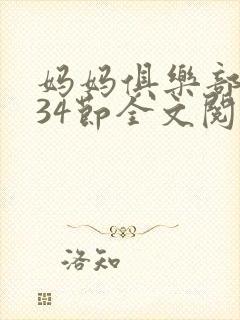 妈妈俱樂部
34節全文閱
洛知